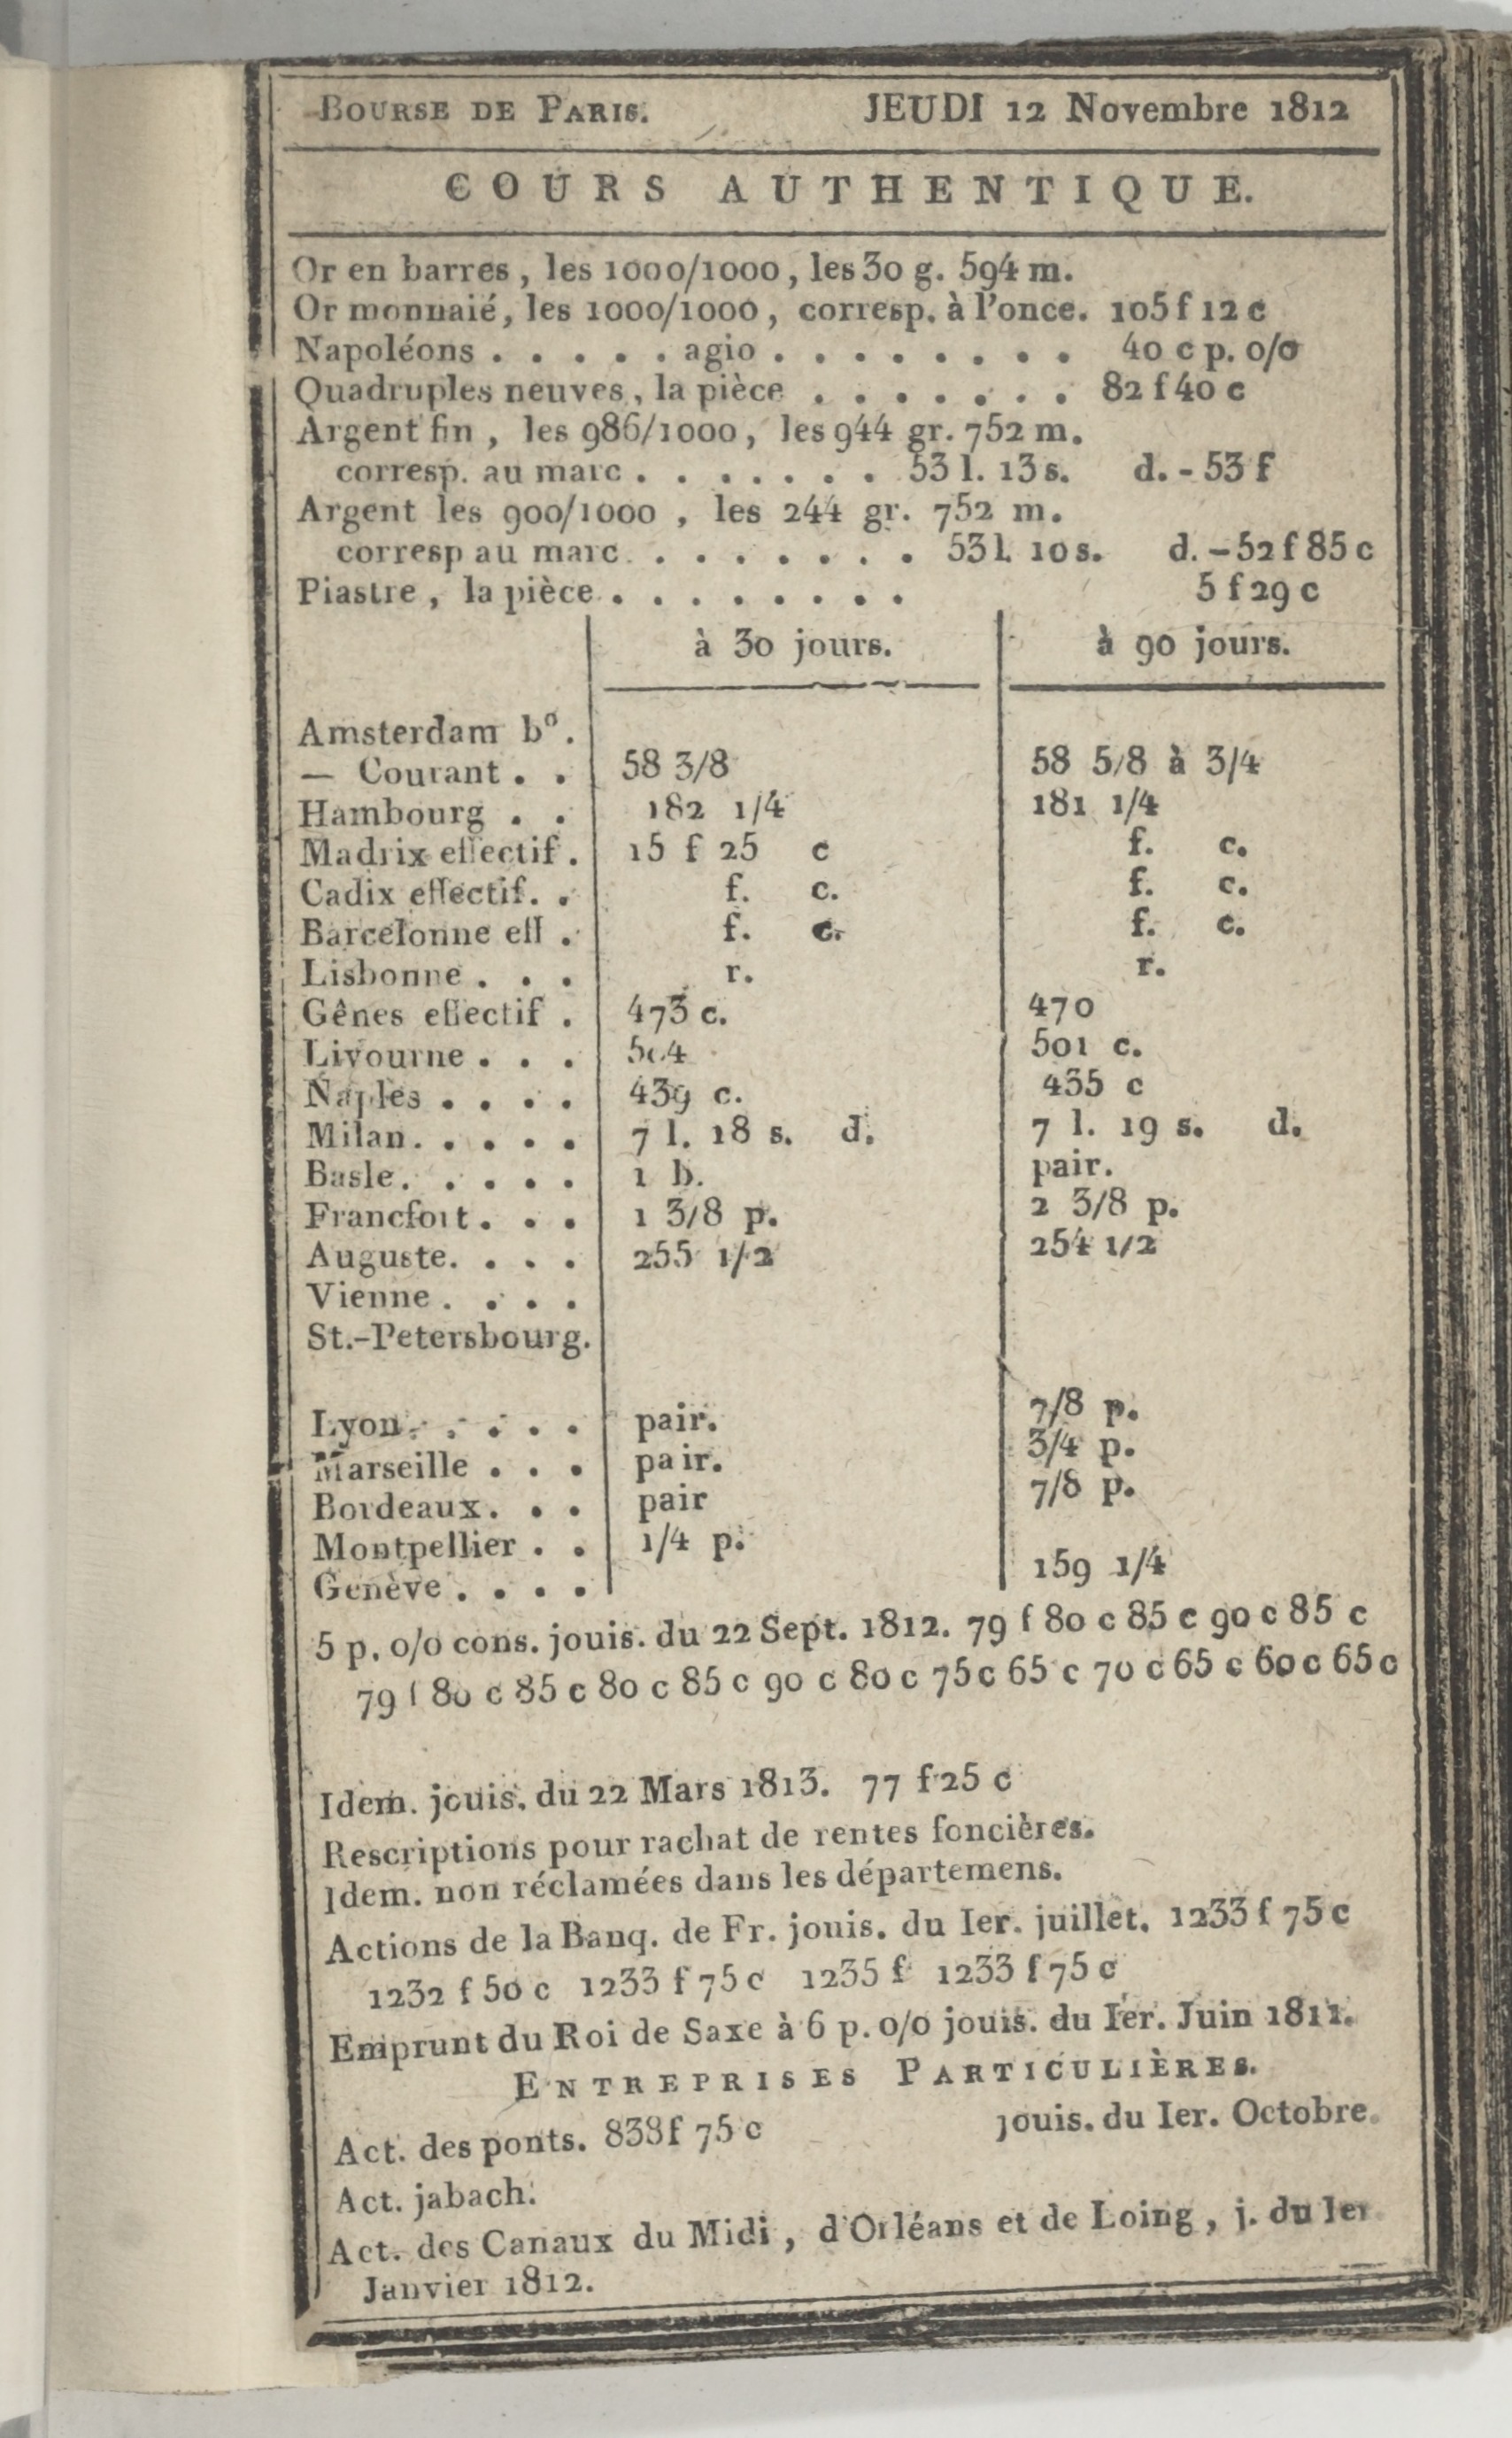 BOURSE DE PARIS. JEUDI 12 Novembre 1812
COURS AUTHENTIQUE.
Or en barres, les 1000/1000, les 30 g. 594 m.
Or monnaié, les 1000/1000, corresp. à l'once. 105 f 12 c
Napoléons . . . . . agio . . . . . . . . 40 c p. 0/0
Quadruples neuves, la pièce . . . . . . . 82 f 40 c
Argent fin, les 986/1000, les 944 gr. 752 m.
corresp. au marc . . . . . . . 53 l. 13 s. d. - 53 f
Argent les 900/1000, les 244 gr. 752 m.
corresp au marc . . . . . . . . 53 l. 10 s. d. - 52 f 85 c
Piastre, la pièce . . . . . . . . 5 f 29 c
à 30 jours. à 90 jours.
Amsterdam bo.
— Courant . . 58 3/8 58 5/8 à 3/4
Hambourg . . 182 1/4 181 1/4
Madrix effectif. 15 f 25 c f. c.
Cadix effectif. . f. c. f. c.
Barcelonne eff . f. c. f. c.
Lisbonne . . . r. r.
Gênes effectif . 473 c. 470
Livourne . . . 504 501 c.
Naples . . . . 439 c. 435 c
Milan. . . . . 7 l. 18 s. d. 7 l. 19 s. d.
Basle. . . . . 1 b. pair.
Francfort. . . 1 3/8 p. 2 3/8 p.
Auguste. . . . 255 1/2 254 1/2
Vienne . . . .
St.-Petersbourg.
Lyon. . . . . pair. 7/8 p.
Marseille . . . pair. 3/4 p.
Bordeaux. . . pair 7/8 p.
Montpellier . . 1/4 p.
Genève . . . . 159 1/4
5 p. 0/0 cons. jouis. du 22 Sept. 1812. 79 f 80 c 85 c 90 c 85 c
79 f 80 c 85 c 80 c 85 c 90 c 80 c 75 c 65 c 70 c 65 c 60 c 65 c
Idem. jouis. du 22 Mars 1813. 77 f 25 c
Rescriptions pour rachat de rentes foncières.
Idem. non réclamées dans les départemens.
Actions de la Banq. de Fr. jouis. du Ier. juillet. 1233 f 75 c
1232 f 50 c 1233 f 75 c 1235 f 1233 f 75 c
Emprunt du Roi de Saxe à 6 p. 0/0 jouis. du Ier. Juin 1811.
ENTREPRISES PARTICULIÈRES.
Act. des ponts. 838 f 75 c jouis. du Ier. Octobre.
Act. jabach.
Act. des Canaux du Midi, d'Orléans et de Loing, j. du Ier
Janvier 1812.